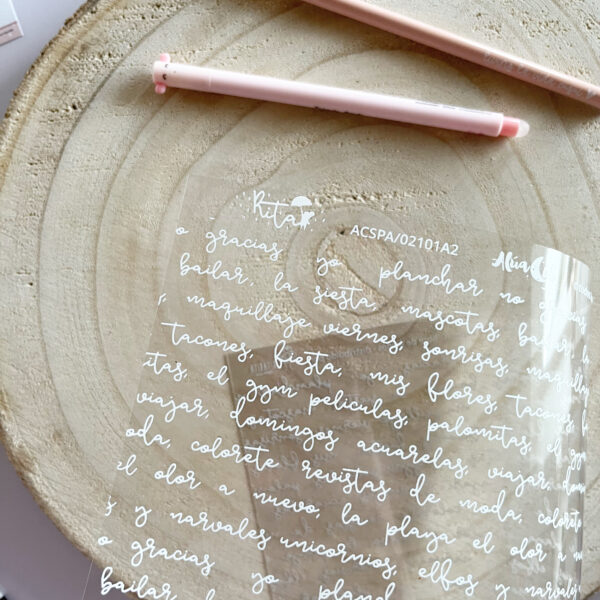 Rita
ACSPA/02101A2
Alúa
o gracias yo planchar no gracias
bailar, la siesta, mascotas, bailar, la
maquillaje viernes, sonrisas, maquillaj
tacones, fiesta, mis flores, tacones,
itas, el gym películas, palomitas, el gym
viajar, domingos acuarelas, viajar, domi
oda, colorete revistas de moda, colorete
el olor a nuevo, la playa el olor a nu
s y narvales unicornios, elfos y narvales
o gracias yo planch
bailar